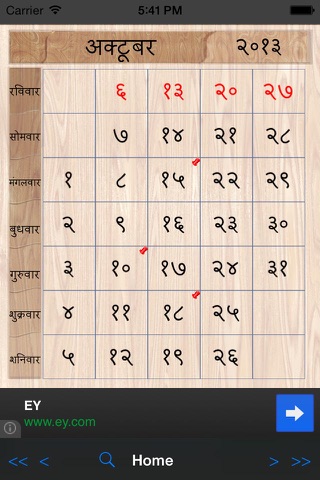 Carrier 5:41 PM
अक्टूबर २०१३
रविवार ६ १३ २० २७
सोमवार ७ १४ २१ २८
मंगलवार १ ८ १५ २२ २९
बुधवार २ ९ १६ २३ ३०
गुरुवार ३ १० १७ २४ ३१
शुक्रवार ४ ११ १८ २५
शनिवार ५ १२ १९ २६
EY
www.ey.com
<< < Home > >>